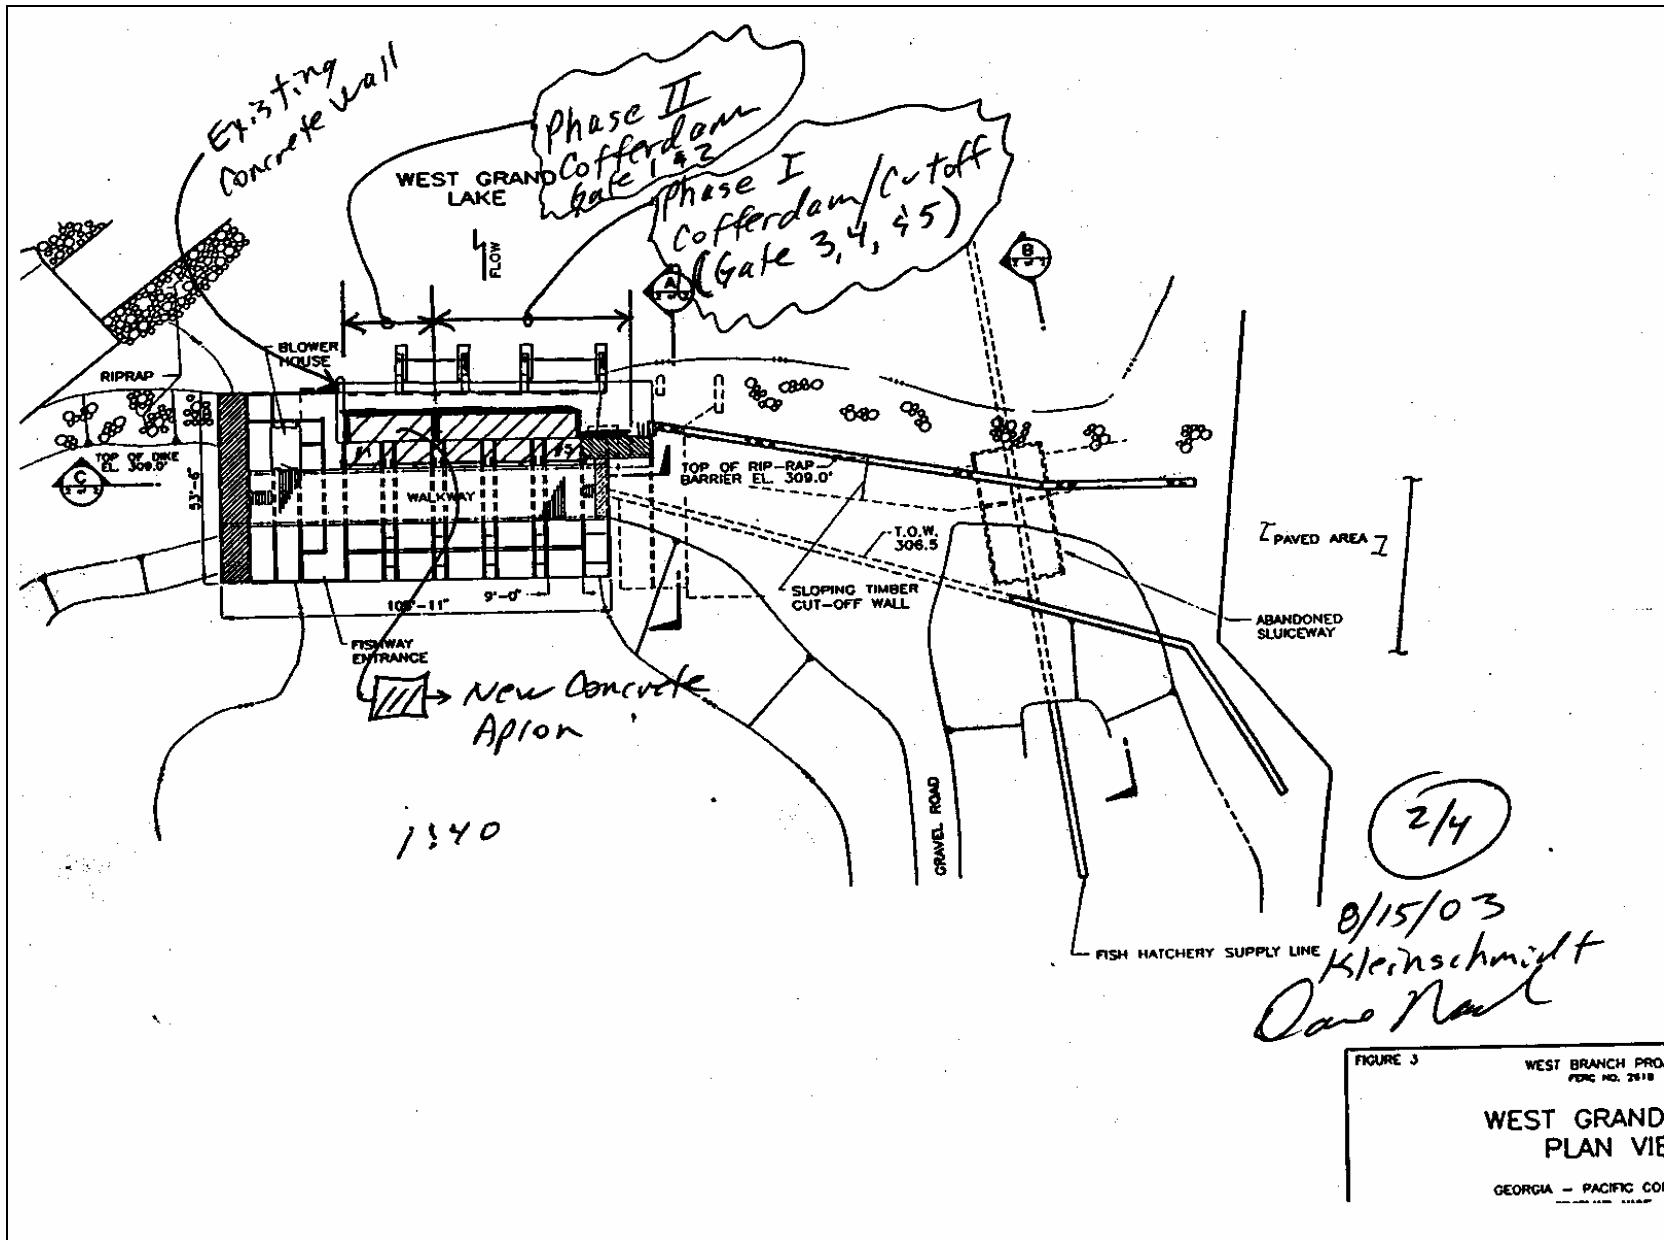 Existing
Concrete Wall
Phase II
Cofferdam
Gate 1 & 2
Phase I
Cofferdam/Cutoff
(Gate 3, 4, & 5)
WEST GRAND
LAKE
FLOW
A
B
BLOWER
HOUSE
RIPRAP
TOP OF DIKE
EL. 309.0'
C
53'-6"
#1
#5
WALKWAY
TOP OF RIP-RAP
BARRIER EL. 309.0'
T.O.W.
306.5
PAVED AREA
SLOPING TIMBER
CUT-OFF WALL
ABANDONED
SLUICEWAY
9'-0"
FISHWAY
ENTRANCE
New Concrete
Apron
1:40
GRAVEL ROAD
2/4
8/15/03
FISH HATCHERY SUPPLY LINE
Kleinschmidt
FIGURE 3
WEST BRANCH PRO
FERC NO. 2618
WEST GRAND
PLAN VIE
GEORGIA - PACIFIC CO